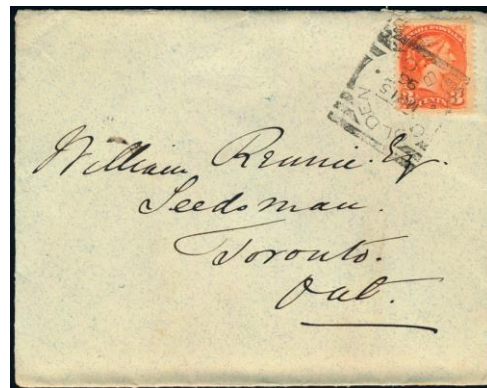 William Rennie. Esq.
Seedsman.
Toronto.
Ont.